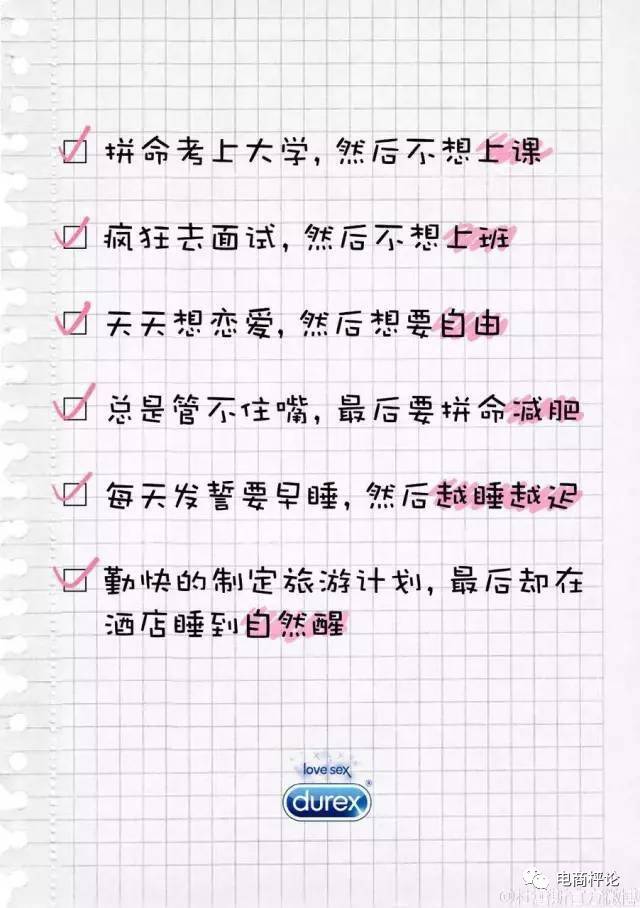 拼命考上大学,然后不想上课
疯狂去面试,然后不想上班
天天想恋爱,然后想要自由
总是管不住嘴,最后要拼命减肥
每天发誓要早睡,然后越睡越迟
勤快的制定旅游计划,最后却在
酒店睡到自然醒
love sex
durex®
电商枰论